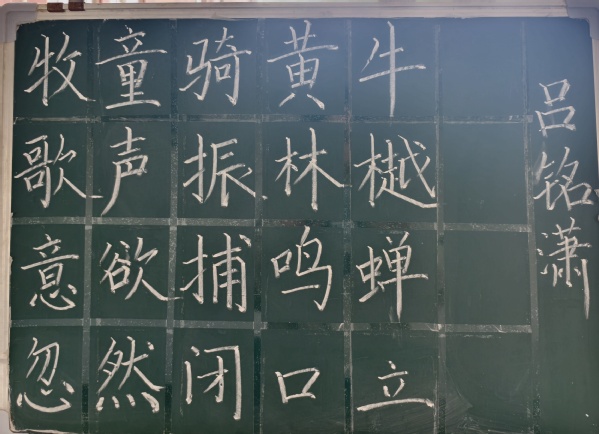 牧童骑黄牛
歌声振林樾
意欲捕鸣蝉
忽然闭口立
吕铭潇